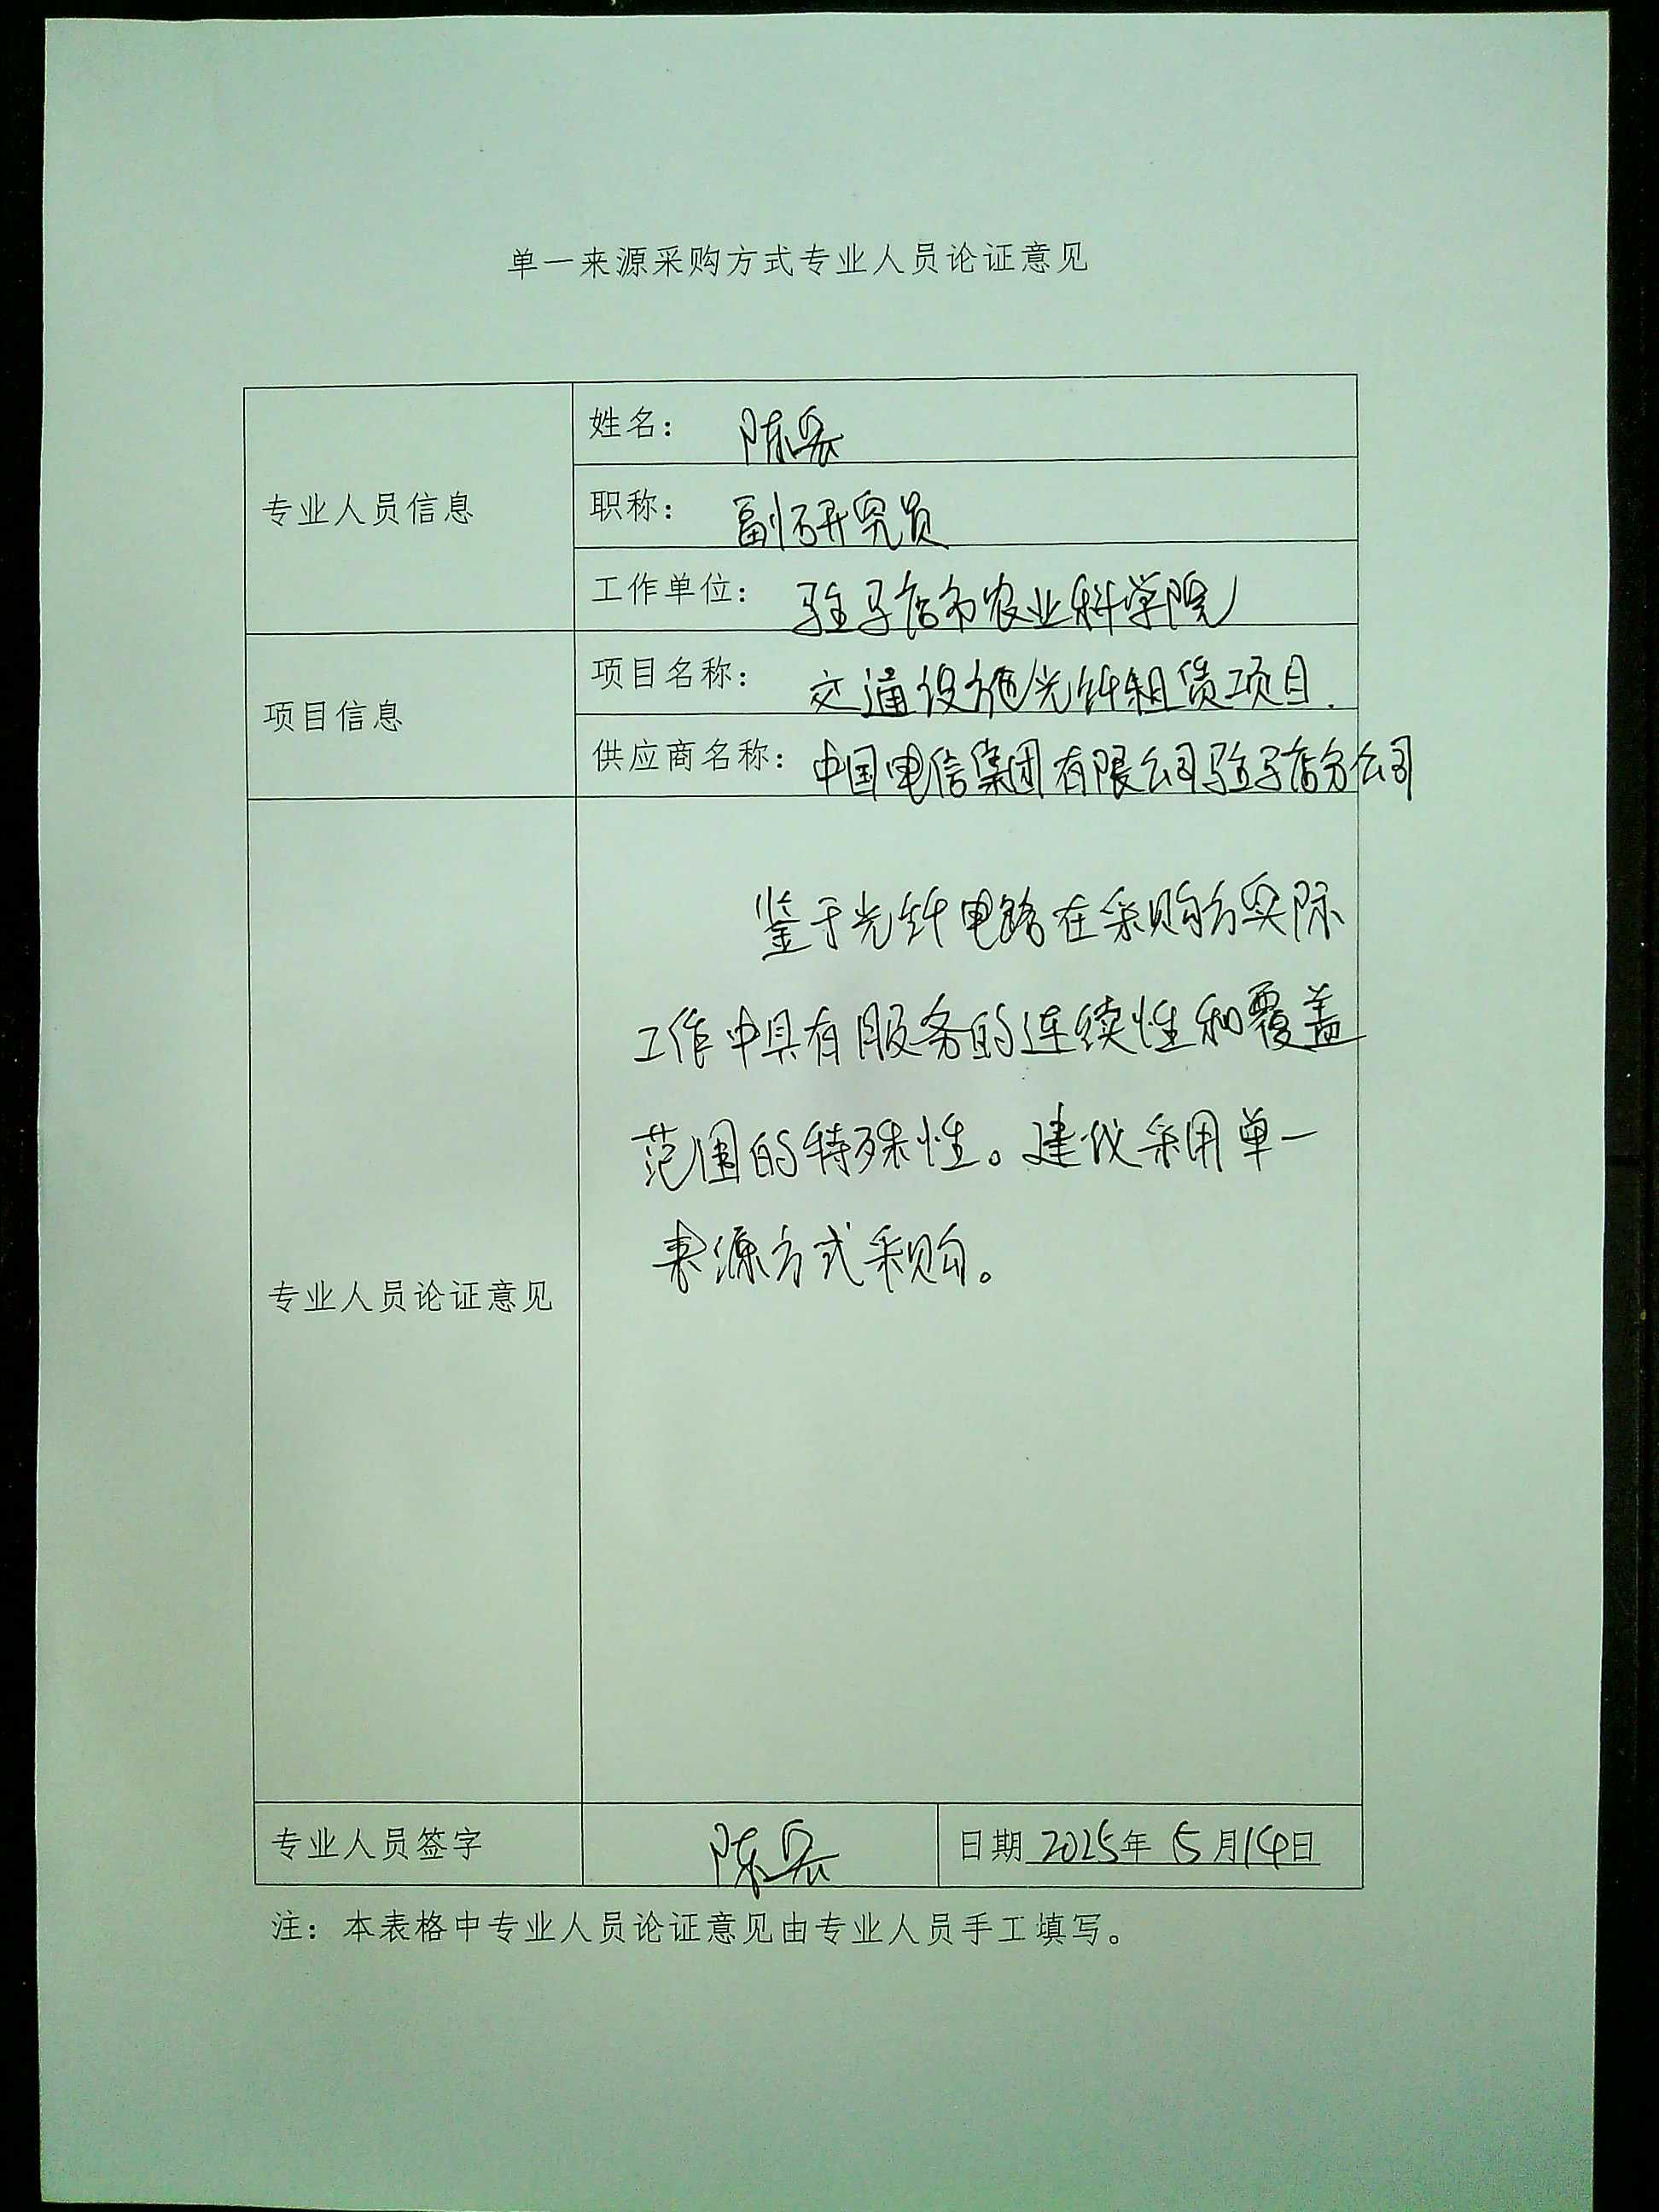 单一来源采购方式专业人员论证意见
专业人员信息
姓名： 陈宏
职称： 副研究员
工作单位： 驻马店市农业科学院
项目信息
项目名称： 交通设施光纤租赁项目.
供应商名称： 中国电信集团有限公司驻马店分公司
专业人员论证意见
鉴于光纤电路在采购方实际
工作中具有服务的连续性和覆盖
范围的特殊性。建议采用单一
来源方式采购。
专业人员签字 陈宏 日期 2025年 5月14日
注：本表格中专业人员论证意见由专业人员手工填写。